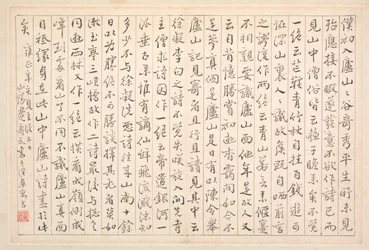 僕初入廬山山谷奇秀平生所未見
殆應接不暇遂發意不欲作詩已而
見山中僧俗皆云蘇子瞻來矣不覺作
一絕云芒鞋青竹杖自挂百錢遊可
怪深山裏人人識故侯既自哂前言
之謬復作兩絕云青山若無素偃蹇
不相親要識廬山面他年是故人又
云自昔憶清賞初遊杳靄間如今不
是夢真個是廬山是日有以陳令舉
廬山記見寄者且行且讀見其中云
徐凝李白之詩不覺失笑旋入開先寺
主僧求詩因作一絕云帝遣銀河一
派垂古來惟有謫仙辭飛流濺沫知
多少不與徐凝洗惡詩往來山南十餘
日以為勝絕不可勝談擇其尤者莫如
漱玉亭三峽橋故作二詩最後与摠老
同遊西林又作一絕云橫看成嶺側成
峰到處看山了不同不識廬山真面
目祇緣身在此山中廬山詩盡於此
矣